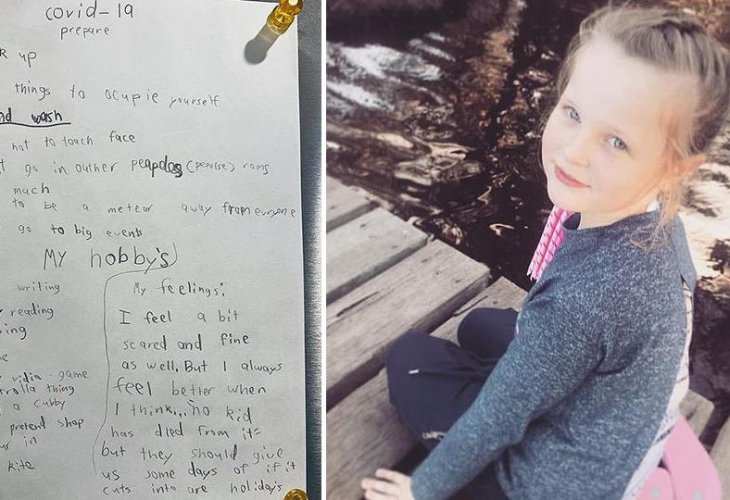 covid-19
prepare
up
things to ocupie yourself
wash
not to toach face
go in outher peapdos (peopolse) roms
mach
to be a meteur away from everyone
go to big events
My hobby's
writing
reading
ing
vidio game
trolla thing
a cubby
pretend shop
in
kite
My feelings:
I feel a bit
scared and fine
as well, But I always
feel better when
I think,,, no kid
has died from it=
but they should give
us some days of if it
cuts into are holidays